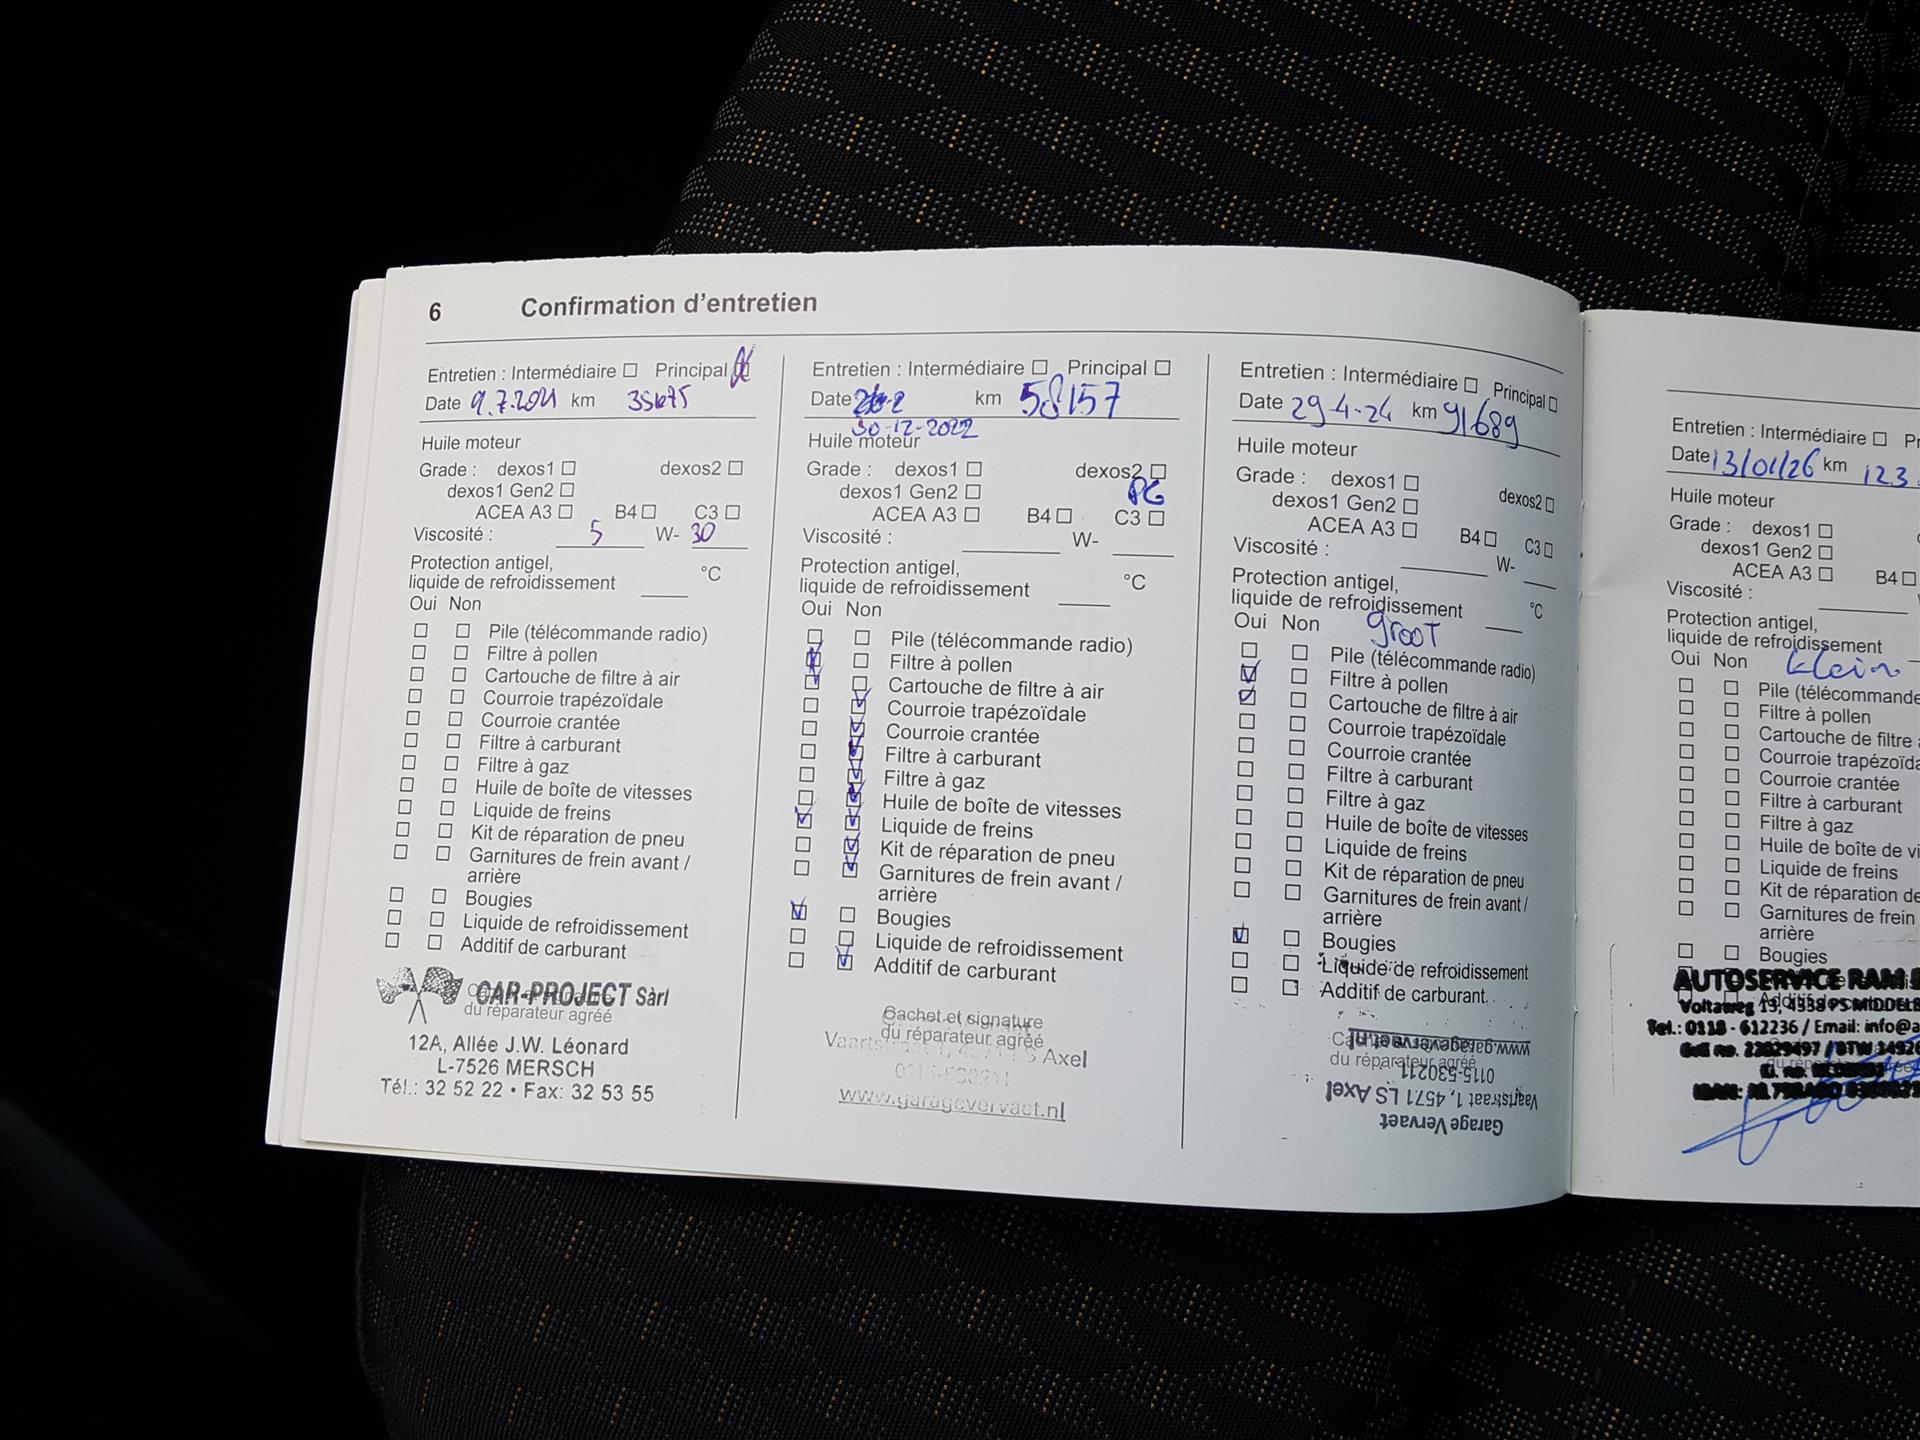 6 Confirmation d'entretien
Entretien : Intermédiaire ☐ Principal ☐
Date 9.7.2021 km 35675
Huile moteur
Grade : dexos1 ☐ dexos2 ☐
dexos1 Gen2 ☐
ACEA A3 ☐ B4 ☐ C3 ☐
Viscosité : 5 W- 30
Protection antigel,
liquide de refroidissement °C
Oui Non
Pile (télécommande radio)
Filtre à pollen
Cartouche de filtre à air
Courroie trapézoïdale
Courroie crantée
Filtre à carburant
Filtre à gaz
Huile de boîte de vitesses
Liquide de freins
Kit de réparation de pneu
Garnitures de frein avant /
arrière
Bougies
Liquide de refroidissement
Additif de carburant
CAR-PROJECT Sàrl
du réparateur agréé
12A, Allée J.W. Léonard
L-7526 MERSCH
Tél.: 32 52 22 • Fax: 32 53 55
Entretien : Intermédiaire ☐ Principal ☐
Date km 58157
30-12-2022
Huile moteur
Grade : dexos1 ☐ dexos2 ☐
dexos1 Gen2 ☐
ACEA A3 ☐ B4 ☐ C3 ☐
Viscosité : W-
Protection antigel,
liquide de refroidissement °C
Oui Non
Pile (télécommande radio)
Filtre à pollen
Cartouche de filtre à air
Courroie trapézoïdale
Courroie crantée
Filtre à carburant
Filtre à gaz
Huile de boîte de vitesses
Liquide de freins
Kit de réparation de pneu
Garnitures de frein avant /
arrière
Bougies
Liquide de refroidissement
Additif de carburant
Cachet et signature
du réparateur agréé
Vaartstraat 1, Axel
www.garagevervaet.nl
Entretien : Intermédiaire ☐ Principal ☐
Date 29-4-24 km 91689
Huile moteur
Grade : dexos1 ☐ dexos2 ☐
dexos1 Gen2 ☐
ACEA A3 ☐ B4 ☐ C3 ☐
Viscosité : W-
Protection antigel,
liquide de refroidissement °C
Oui Non grooT
Pile (télécommande radio)
Filtre à pollen
Cartouche de filtre à air
Courroie trapézoïdale
Courroie crantée
Filtre à carburant
Filtre à gaz
Huile de boîte de vitesses
Liquide de freins
Kit de réparation de pneu
Garnitures de frein avant /
arrière
Bougies
Liquide de refroidissement
Additif de carburant
du réparateur agréé
Garage Vervaet
Vaartstraat 1, 4571 LS Axel
0115-530211
www.garagevervaet.nl
Entretien : Intermédiaire ☐ Pr
Date 13/01/26 km 123
Huile moteur
Grade : dexos1 ☐
dexos1 Gen2 ☐
ACEA A3 ☐ B4 ☐
Viscosité :
Protection antigel,
liquide de refroidissement
Oui Non klein
Pile (télécommande
Filtre à pollen
Cartouche de filtre
Courroie trapézoïda
Courroie crantée
Filtre à carburant
Filtre à gaz
Huile de boîte de vi
Liquide de freins
Kit de réparation de
Garnitures de frein
arrière
Bougies
AUTOSERVICE RAM
Voltaweg 13, 4338 PS MIDDEL
Tel.: 0118 - 612236 / Email: info@a